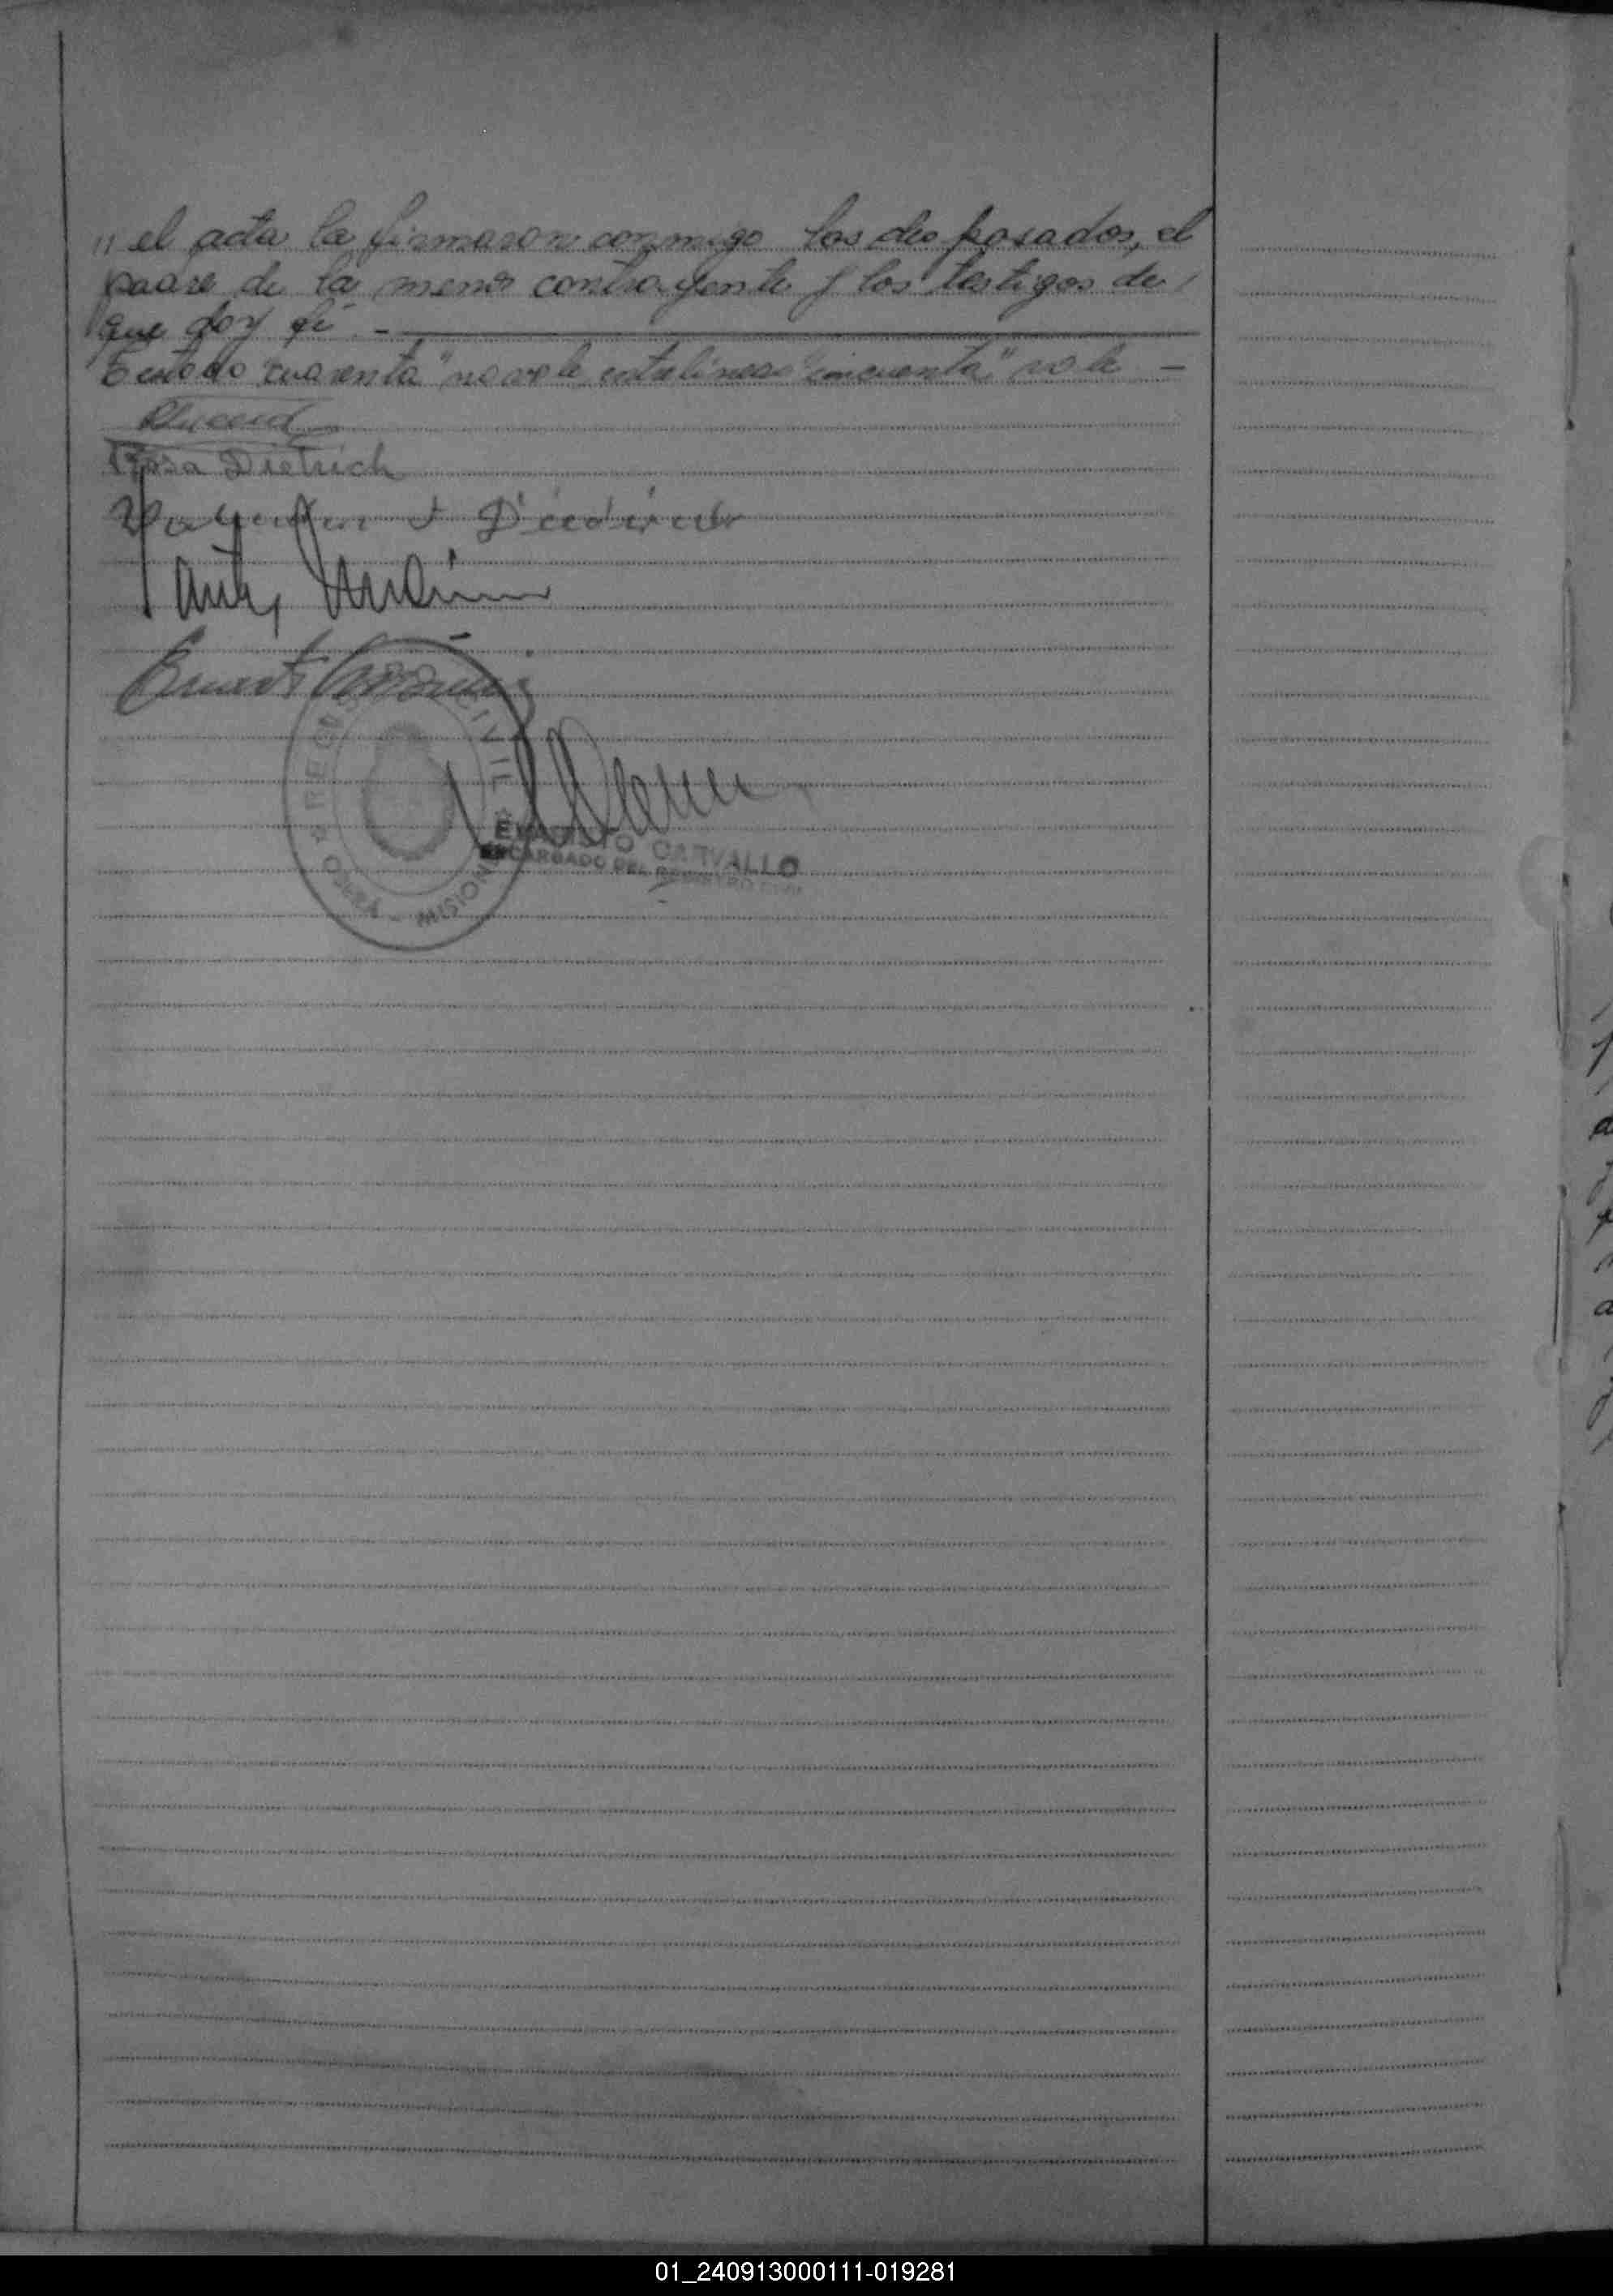 " el acta la firmaron conmigo los desposados, el
padre de la menor contrayente y los testigos de
que doy fé -
Testado "cuarenta" no vale entrelineas "cincuenta" vale -
Rosa Dietrich
REGISTRO CIVIL
OBERA - MISIONES
EVARISTO CARVALLO
ENCARGADO DEL REGISTRO CIVIL
01_240913000111-019281